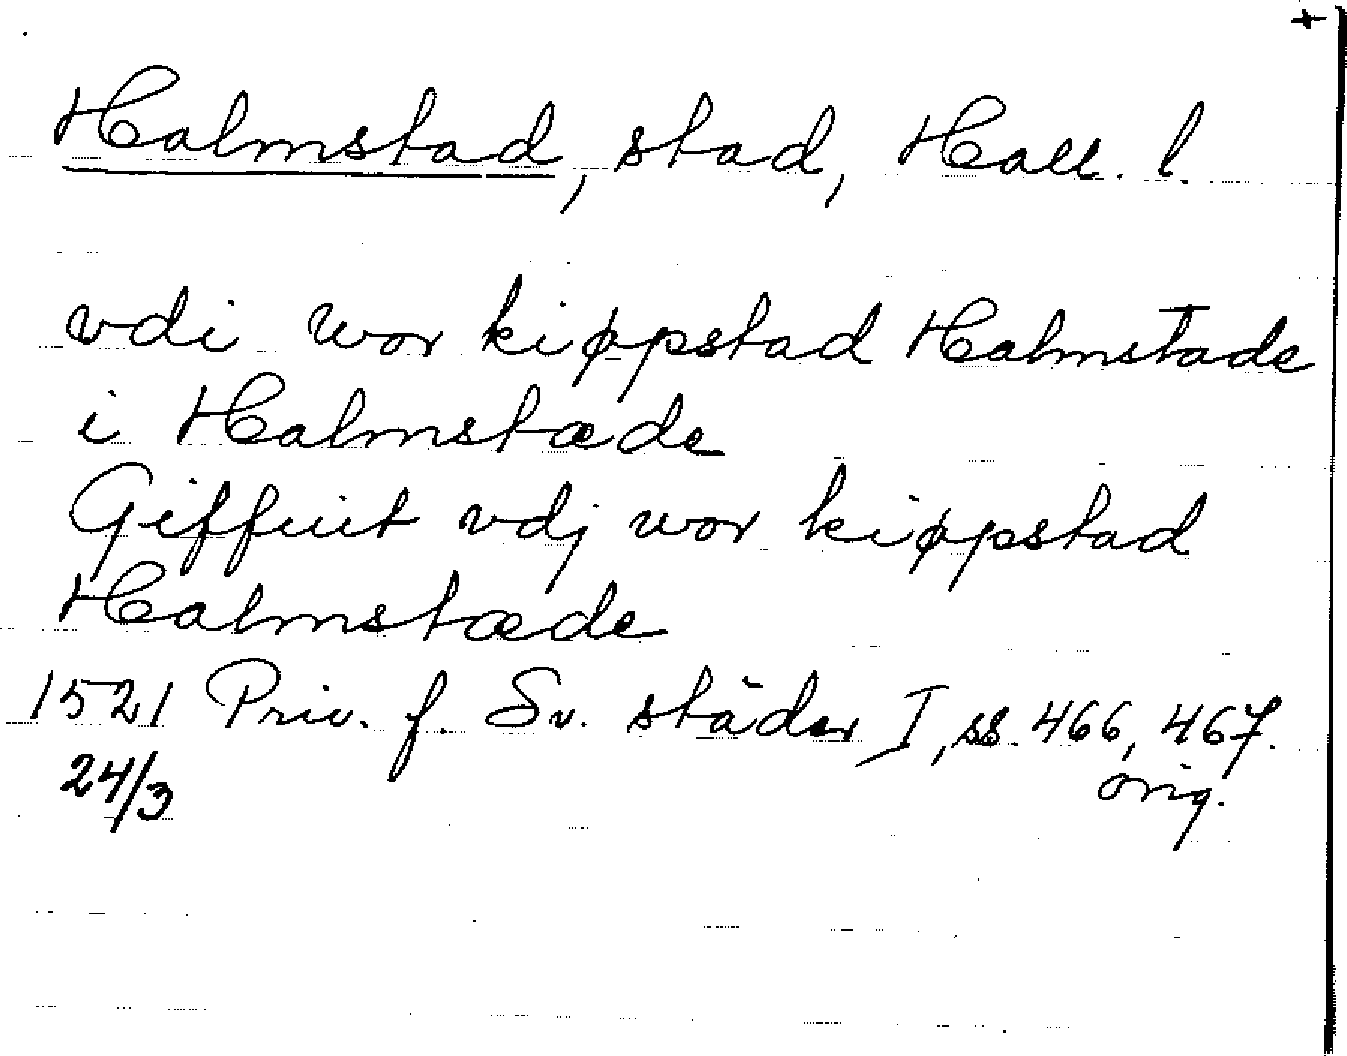 +
Halmstad, stad, Hall. l.
vdi wor kiøpstad Halmstade
i Halmstæde
Giffuit vdj wor kiøpstad
Halmstæde
1521 Priv. f. Sv. städer I, ss. 466, 467.
24/3 orig.